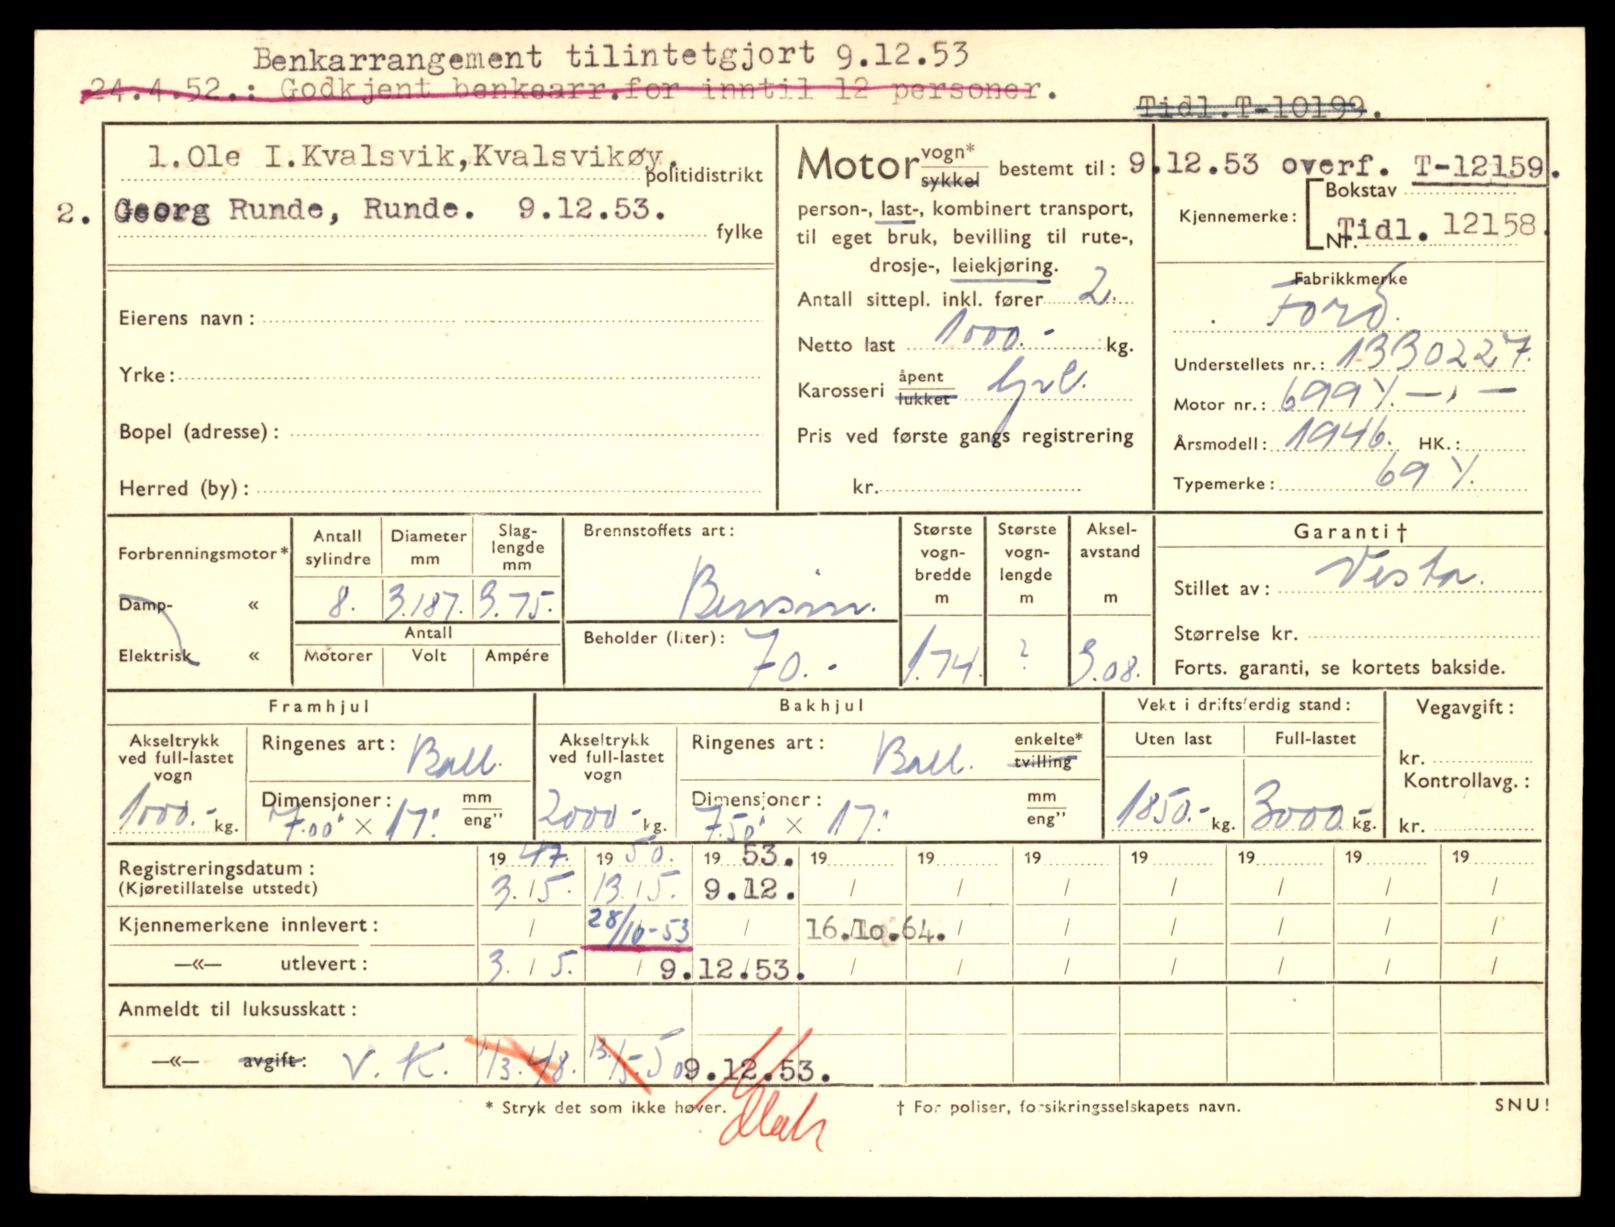 Benkarrangement tilintetgjort 9.12.53
24.4.52.: Godkjent benkearr.for inntil 12 personer.
Tidl.T-10199.
1.Ole I.Kvalsvik,Kvalsvikøy.
politidistrikt
2. Georg Runde, Runde. 9.12.53.
fylke
Eierens navn:
Yrke:
Bopel (adresse):
Herred (by):
Motor vogn* sykkel bestemt til:
person-, last-, kombinert transport,
til eget bruk, bevilling til rute-,
drosje-, leiekjøring.
Antall sittepl. inkl. fører 2.
Netto last 1000.- kg.
Karosseri åpent lukket
Pris ved første gangs registrering
kr.
9.12.53 overf. T-12159.
Bokstav
Kjennemerke:
Nr. Tidl. 12158.
Fabrikkmerke
Ford.
Understellets nr.: 1330227.
Motor nr.: 699Y. —,—
Årsmodell: 1946. HK.:
Typemerke: 69 Y.
Forbrenningsmotor*
Damp- «
Elektrisk «
Antall sylindre
Diameter mm
Slag-lengde mm
8. 3.187. 3.75.
Antall
Motorer Volt Ampére
Brennstoffets art:
Bensin.
Beholder (liter): 70.-
Største vogn-bredde m
1.74.
Største vogn-lengde m
?
Aksel-avstand m
3.08.
Garanti †
Stillet av: Vesta.
Størrelse kr.
Forts. garanti, se kortets bakside.
Framhjul
Akseltrykk ved full-lastet vogn
1000.- kg.
Ringenes art: Ball.
Dimensjoner: mm eng"
7.00" × 17"
Bakhjul
Akseltrykk ved full-lastet vogn
2000.- kg.
Ringenes art: Ball. enkelte* tvilling
Dimensjoner: mm eng"
7.50" × 17"
Vekt i driftsferdig stand:
Uten last Full-lastet
1850.- kg. 3000.- kg.
Vegavgift:
kr.
Kontrollavg.:
kr.
Registreringsdatum: 19 47. 19 50. 19 53. 19 19 19 19 19 19 19
(Kjøretillatelse utstedt) 3./5. 13./5. 9.12. / / / / / / /
Kjennemerkene innlevert: / 28/10-53 / 16.10.64. / / / / / /
—«— utlevert: 3./5. / 9.12.53. / / / / / / /
Anmeldt til luksusskatt:
—«— avgift: V. K. 1/3.48. 13./5-50 9.12.53.
* Stryk det som ikke høver.
† For poliser, forsikringsselskapets navn.
SNU!